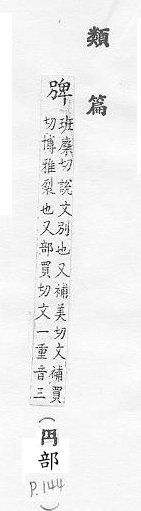 類篇
𤰞班糜切說文別也又補美切文補買
切博雅裂也又部買切文一重音三
(冎部
P.144
)